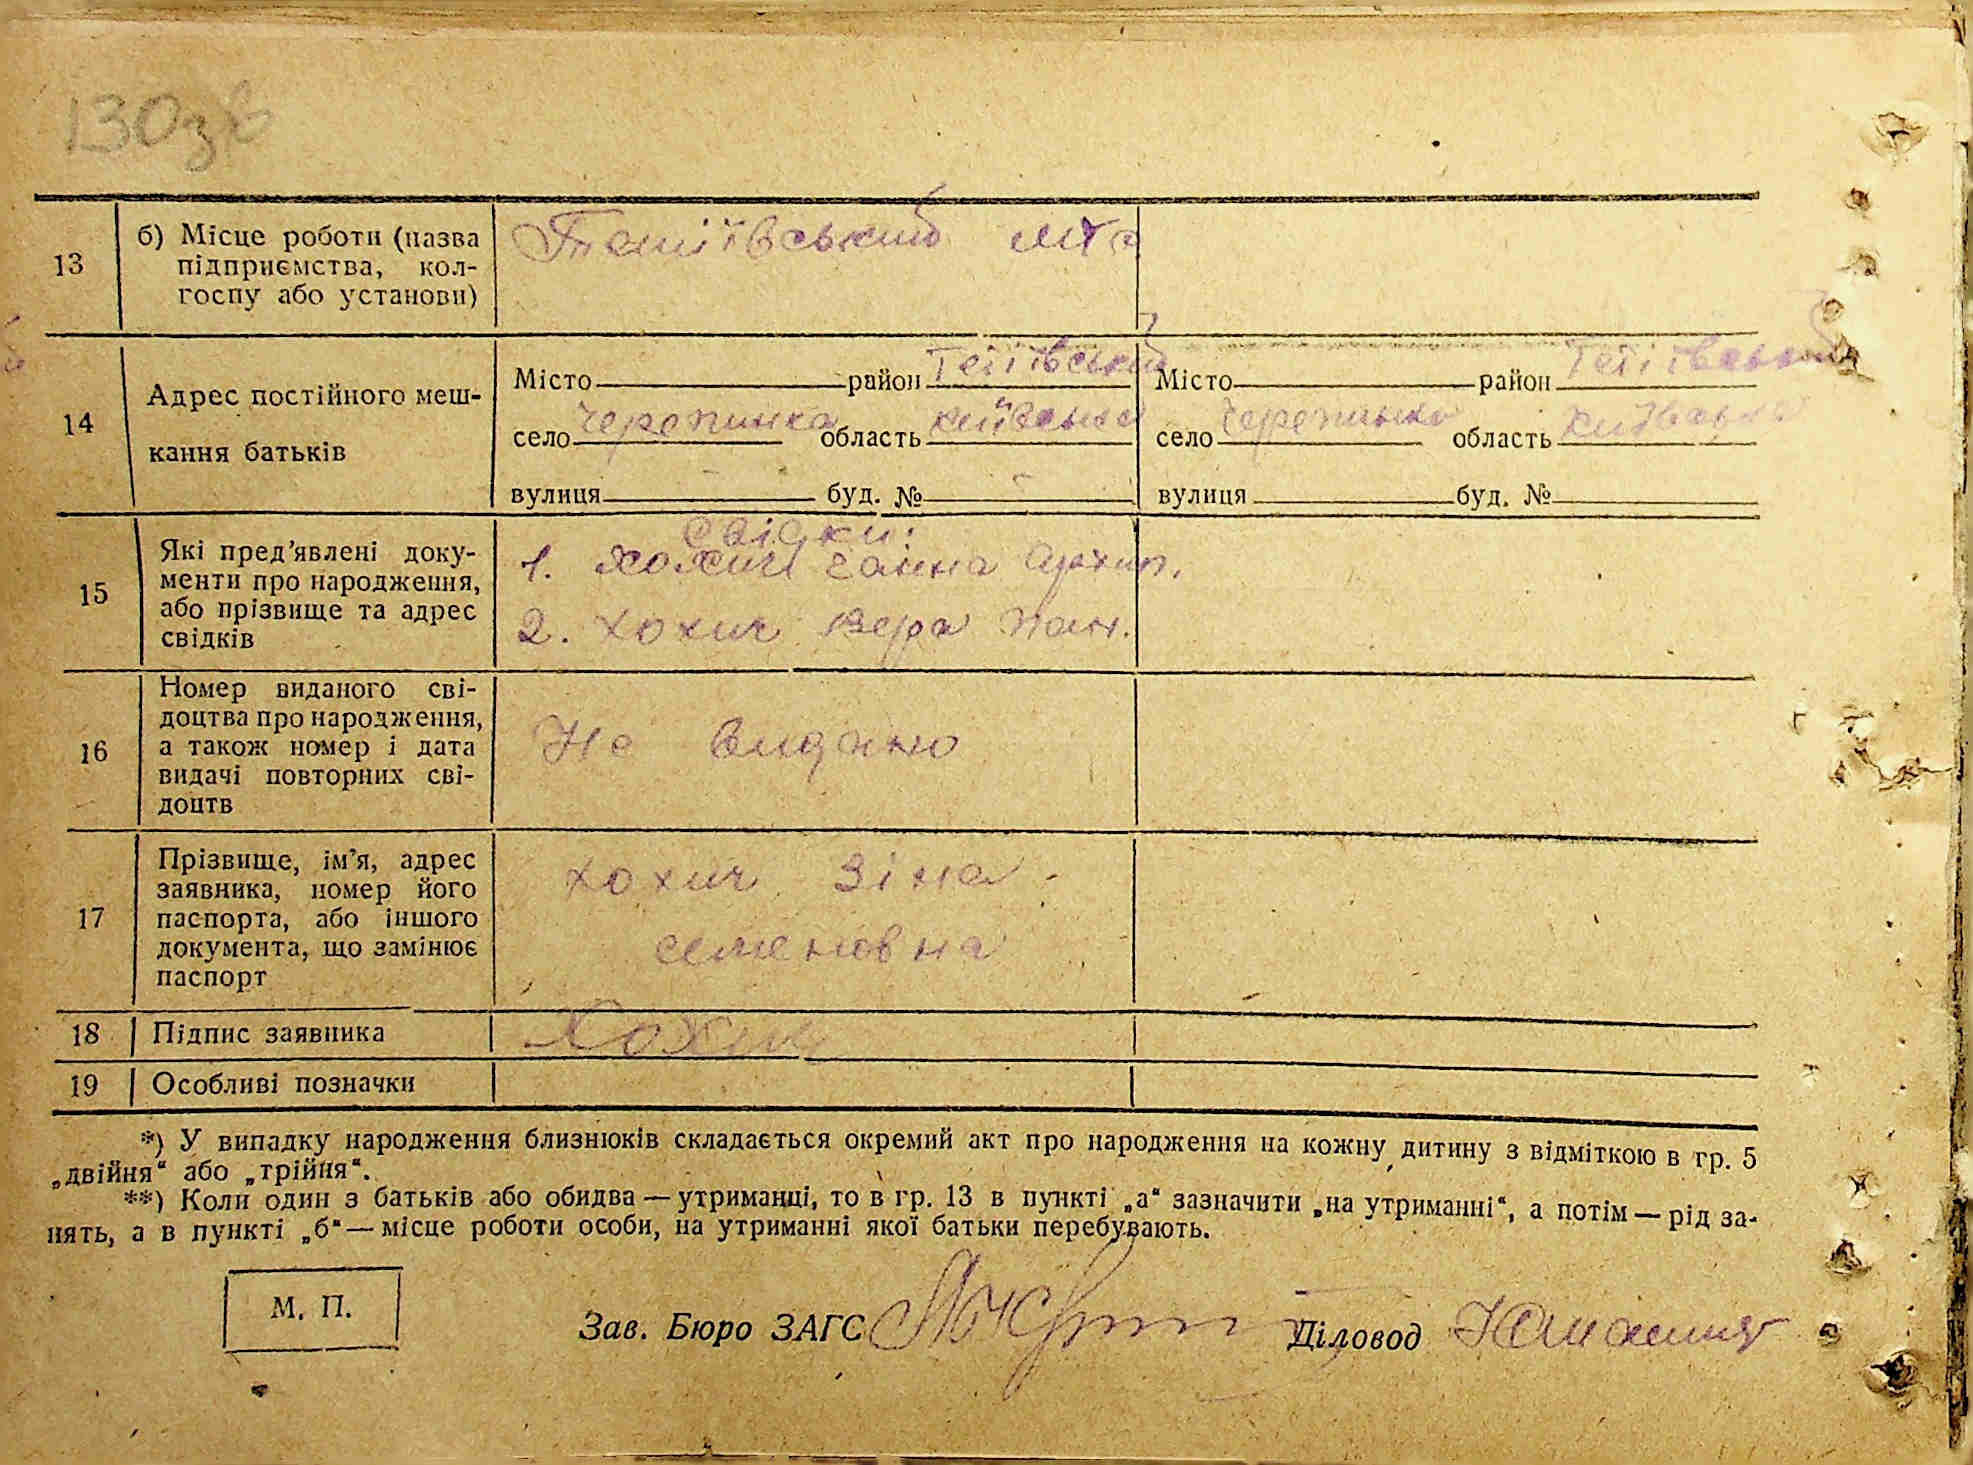 130зв
13
б) Місце роботи (назва
підприємства, кол-
госпу або установи)
14
Адрес постійного меш-
кання батьків
Місто район Тетіївський
село Черепинка область Київська
вулиця буд. №
Місто район Тетіївський
село Черепинка область Київська
вулиця буд. №
15
Які пред’явлені доку-
менти про народження,
або прізвище та адрес
свідків
Свідки:
1. Хохич Ганна Архип.
2. Хохич Вера Пан.
16
Номер виданого сві-
доцтва про народження,
а також номер і дата
видачі повторних сві-
доцтв
Не видано
17
Прізвище, ім’я, адрес
заявника, номер його
паспорта, або іншого
документа, що замінює
паспорт
Хохич Зіна
Семеновна
18
Підпис заявника
Хохич
19
Особливі позначки
*) У випадку народження близнюків складається окремий акт про народження на кожну дитину з відміткою в гр. 5
„двійня“ або „трійня“.
**) Коли один з батьків або обидва — утриманці, то в гр. 13 в пункті „а“ зазначити „на утриманні“, а потім — рід за-
нять, а в пункті „б“ — місце роботи особи, на утриманні якої батьки перебувають.
М. П.
Зав. Бюро ЗАГС
Діловод